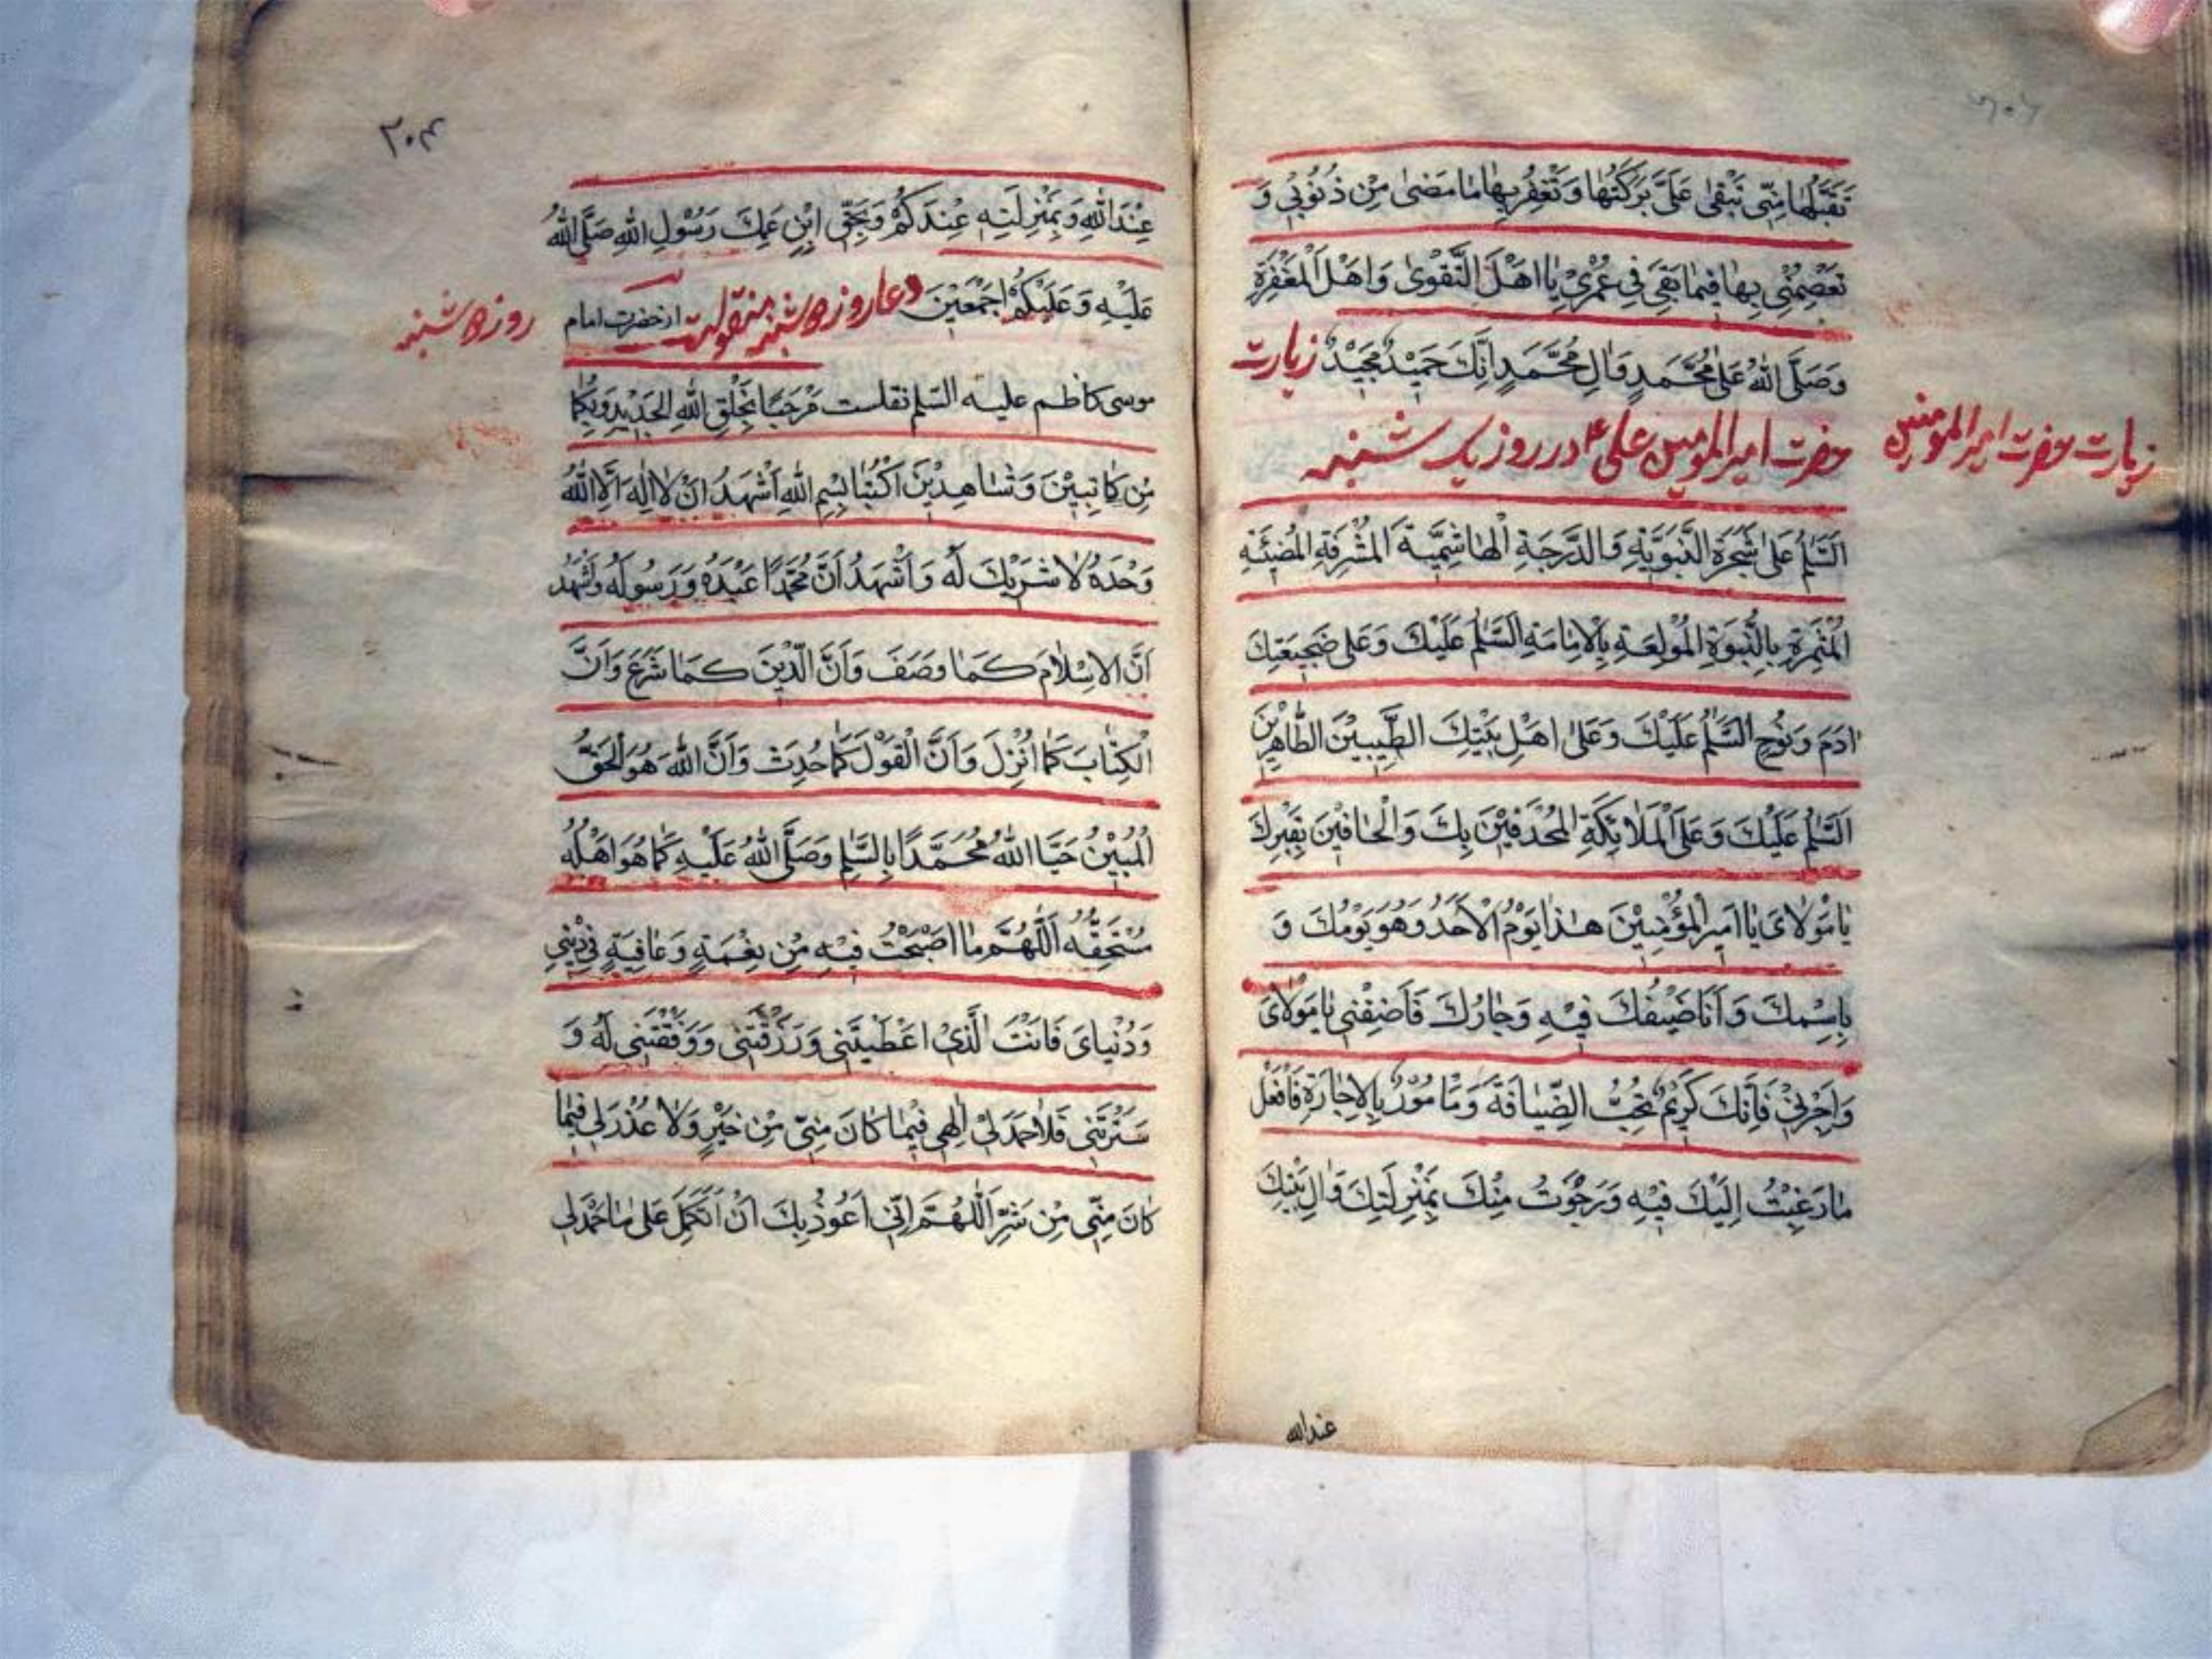 تَقَبَّلُهَا مِنّي تَبْقىٰ عَلَيَّ بَرَكَتُهَا وَتَغْفِرُ بِهَا مَا مَضىٰ مِنْ ذُنُوبي وَ
تَعْصِمُنِي بِهَا فِيمَا بَقِيَ فِي عُمْرِيْ يَا اَهْلَ التَّقْوىٰ وَاَهْلَ الْمَغْفِرَةِ
وَصَلَّى اللهُ عَلىٰ مُحَمَّدٍ وَالِ مُحَمَّدٍ اِنَّكَ حَمِيْدٌ مَجِيْدٌ زیارت
حضرت امیر المومنین علی ع در روز یک شنبه
زیارت حضرت امیر المومنین
اَلسَّلٰمُ عَلىٰ شَجَرَةِ النَّبَوِيَّةِ وَالدَّرَجَةِ الْهَاشِمِيَّةِ الْمُشْرِقَةِ الْمُضِيْئَةِ
الْمُثْمِرَةِ بِالنُّبُوَةِ الْمُوْلِعَةِ بِالْاِمَامَةِ السَّلٰمُ عَلَيْكَ وَعَلى ضَجِيعَيْكَ
اٰدَمَ وَنُوْحٍ السَّلٰمُ عَلَيْكَ وَعَلىٰ اَهْلِ بَيْتِكَ الطَّيِّبِيْنَ الطَّاهِرِيْنَ
اَلسَّلٰمُ عَلَيْكَ وَعَلَى الْمَلَائِكَةِ الْمُحْدَقِيْنَ بِكَ وَالْحَافِيْنَ بِقَبْرِكَ
يَا مَوْلَايَ يَا اَمِيرَ الْمُؤْمِنِيْنَ هٰذَا يَوْمُ الْاَحَدُ وَهُوَ يَوْمُكَ وَ
بِاسْمِكَ وَاَنَا ضَيْفُكَ فِيْهِ وَجَارُكَ فَاَضِفْنِي يَا مَوْلَايَ
وَاَجِرْنِيْ فَاِنَّكَ كَرِيْمٌ تُحِبُّ الضِّيَافَةَ وَمَامُوْرٌ بِالْاِجَارَةِ فَافْعَلْ
مَا رَغِبْتُ اِلَيْكَ فِيْهِ وَرَجَوْتُ مِنْكَ بِمَنْزِلَتِكَ وَاٰلِ بَيْتِكَ
عندالله
۲۰۴
عِنْدَ اللهِ وَبِمَنْزِلَتِهِ عِنْدَكُمْ وَبِحَقِّ ابْنِ عَمِّكَ رَسُوْلِ اللهِ صَلَّى اللهُ
عَلَيْهِ وَعَلَيْكُمْ اَجْمَعِيْنَ دعا روز دوشنبه منقولست از حضرت امام
روز دوشنبه
موسى كاظم عليه السّلم نقلست مَرْحَبًا بِخَلْقِ اللهِ الْجَدِيْدِ وَبِكُمَا
مِنْ كَاتِبِيْنَ وَشَاهِدِيْنَ اُكْتُبَا بِسْمِ اللهِ اَشْهَدُ اَنْ لَا اِلٰهَ اِلَّا اللهُ
وَحْدَهُ لَا شَرِيْكَ لَهُ وَاَشْهَدُ اَنَّ مُحَمَّدًا عَبْدُهُ وَرَسُوْلُهُ وَاَشْهَدُ
اَنَّ الْاِسْلَامَ كَمَا وَصَفَ وَاَنَّ الدِّيْنَ كَمَا شَرَعَ وَاَنَّ
الْكِتَابَ كَمَا اُنْزِلَ وَاَنَّ الْقَوْلَ كَمَا حُدِثَ وَاَنَّ اللهَ هُوَ الْحَقُّ
الْمُبِيْنُ حَيَّا اللهُ مُحَمَّدًا بِالسَّلٰمِ وَصَلَّى اللهُ عَلَيْهِ كَمَا هُوَ اَهْلُهُ
مُسْتَحِقُّهُ اَللّٰهُمَّ مَا اَصْبَحْتُ فِيْهِ مِنْ نِعْمَةٍ وَعَافِيَةٍ فِيْ دِيْنِي
وَدُنْيَايَ فَاَنْتَ الَّذِيْ اَعْطَيْتَنِي وَرَزَقْتَنِي وَوَفَّقْتَنِي لَهُ وَ
سَتَرْتَنِي فَلَا حَمْدَ لِيْ اِلٰهِي فِيْمَا كَانَ مِنِّي مِنْ خَيْرٍ وَلَا عُذْرَ لِي فِيْمَا
كَانَ مِنِّي مِنْ شَرٍّ اَللّٰهُمَّ اِنِّي اَعُوْذُ بِكَ اَنْ اَتَّكِلَ عَلىٰ مَا لَا حَمْدَ لِي